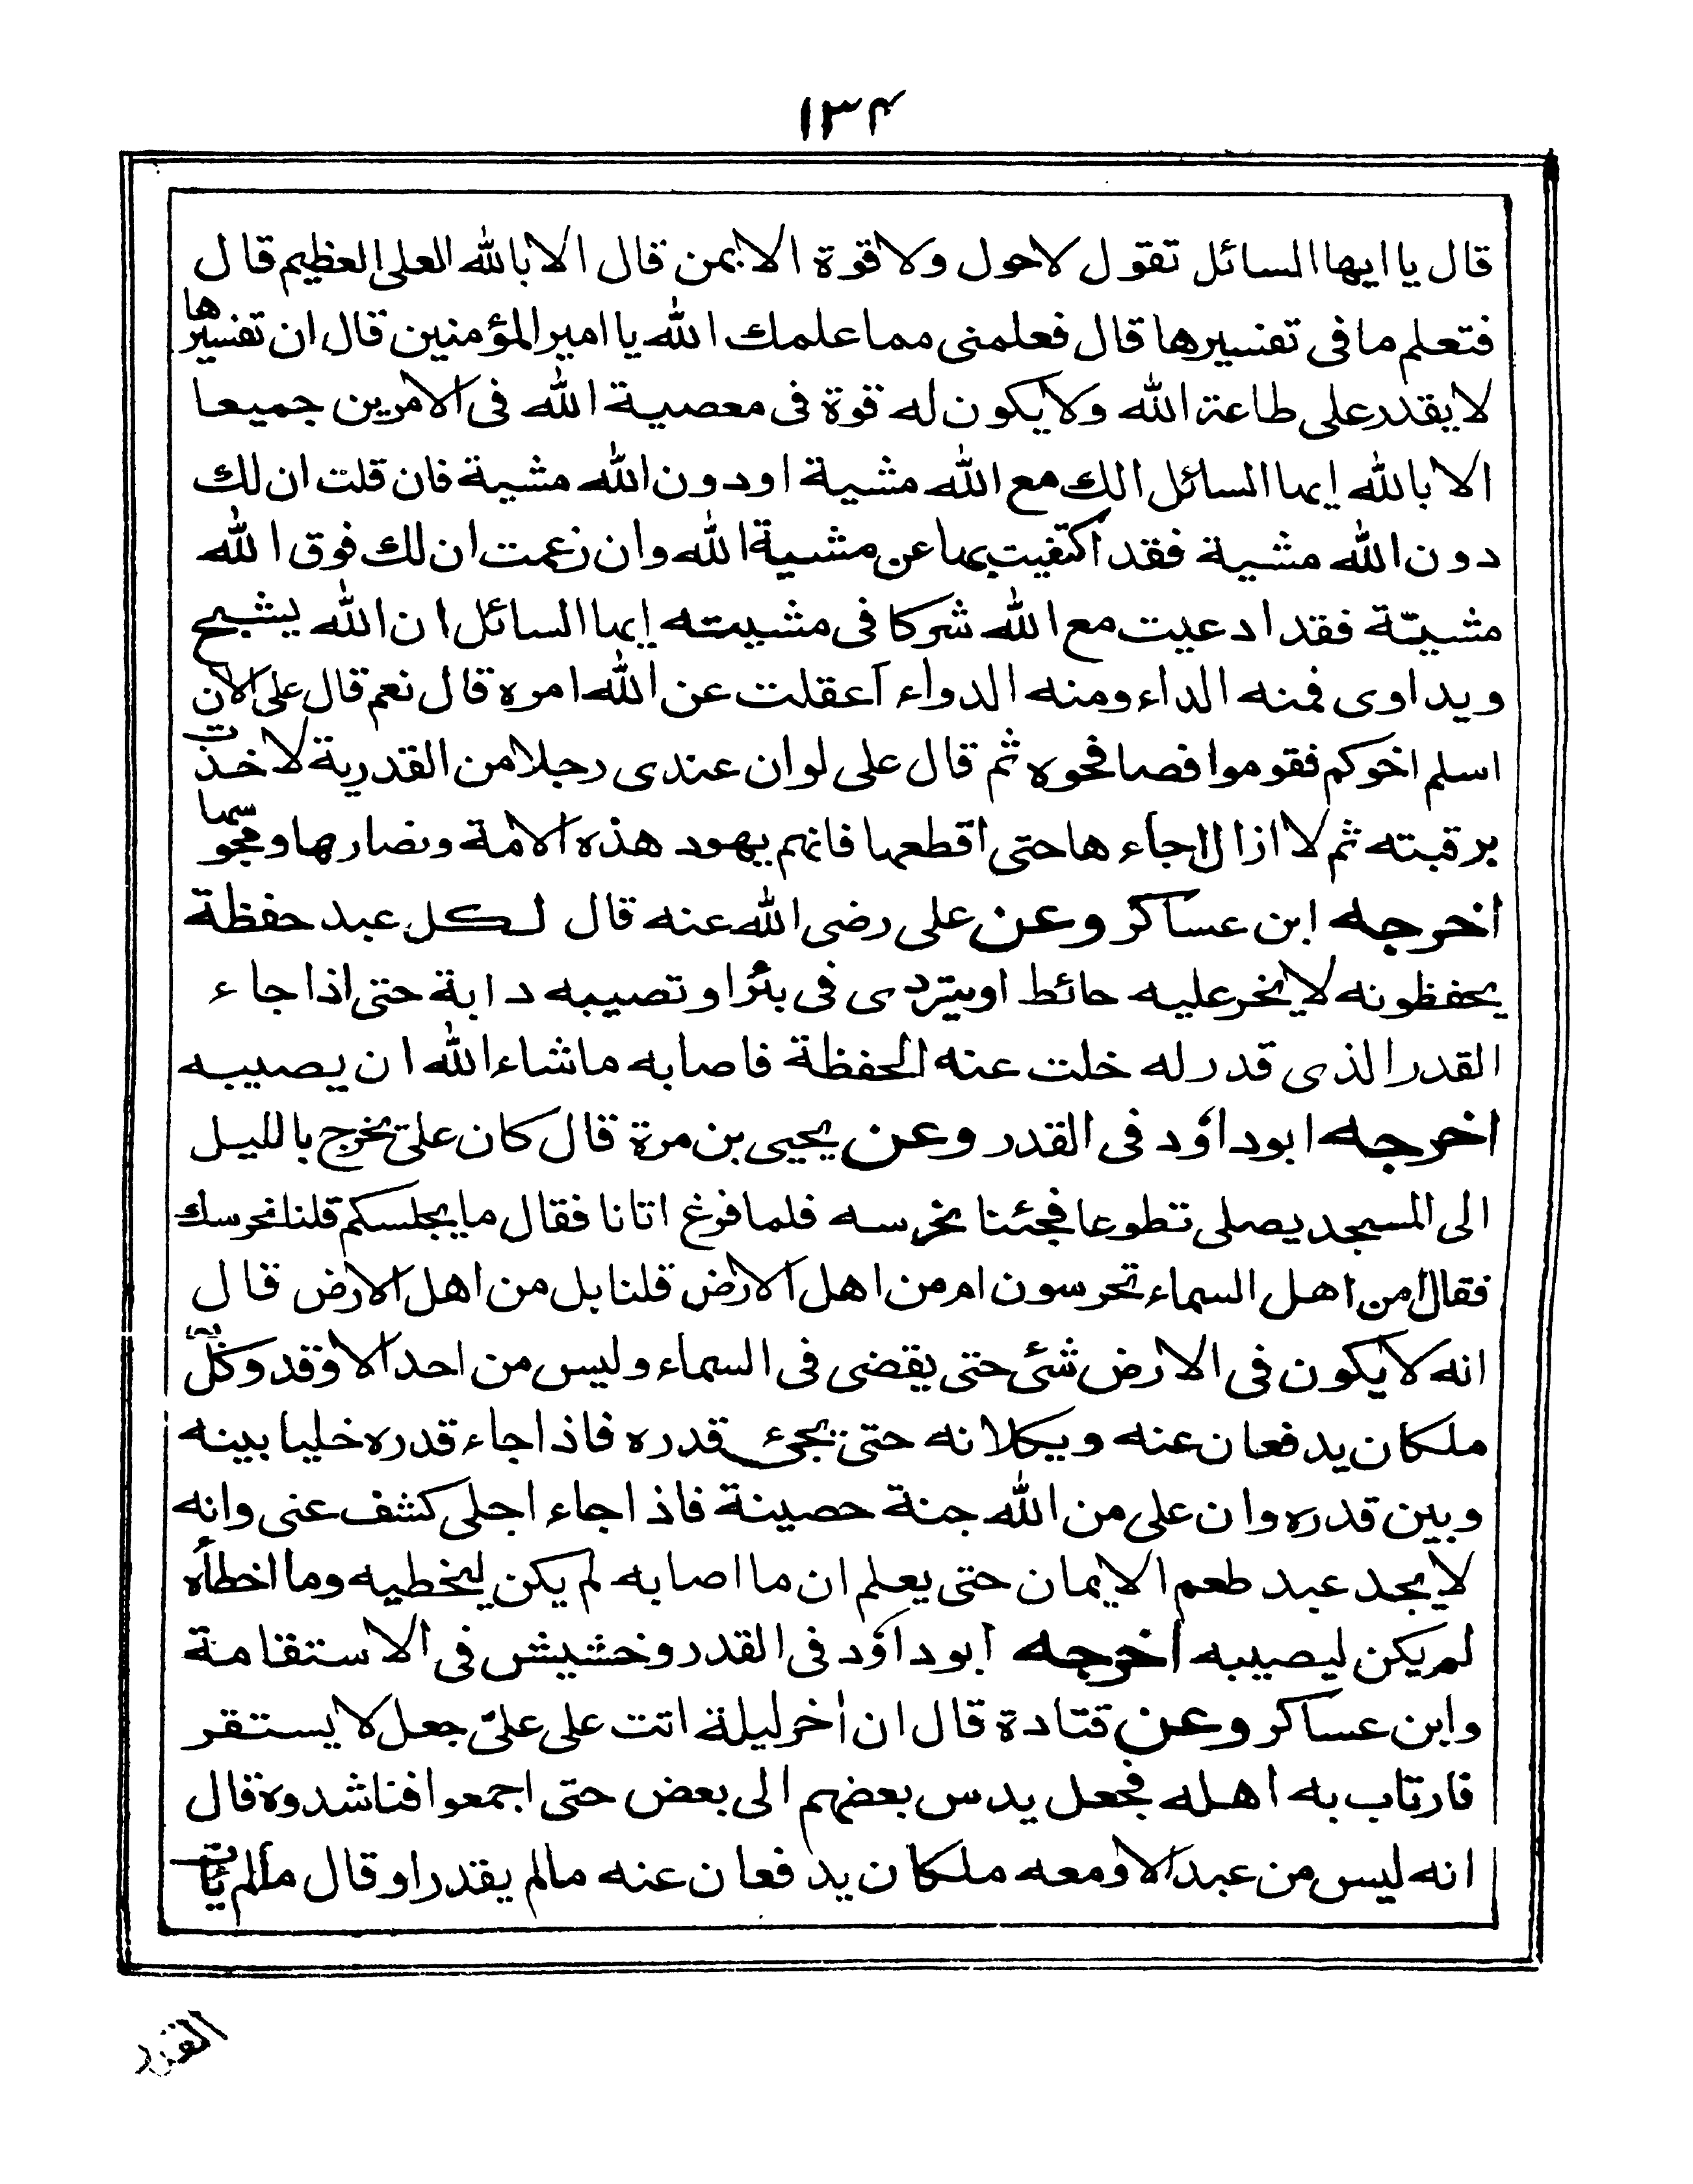 ١٣٤
قال يا ايها السائل تقول لاحول ولا قوة الا بمن قال الا بالله العلى العظيم قال
فتعلم ما فى تفسيرها قال فعلمنى مما علمك الله يا امير المؤمنين قال ان تفسيرها
لا يقدر على طاعة الله ولا يكون له قوة فى معصية الله فى الامرين جميعا
الا بالله ايها السائل الك مع الله مشية او دون الله مشية فان قلت ان لك
دون الله مشية فقد اكتفيت بها عن مشية الله وان زعمت ان لك فوق الله
مشيّة فقد ادعيت مع الله شركا فى مشيته ايها السائل ان الله يشبح
ويداوى فمنه الداء ومنه الدواء أعقلت عن الله امره قال نعم قال على الان
اسلم اخوكم فقوموا فصافحوه ثم قال على لو ان عندى رجلا من القدرية لاخذت
برقبته ثم لا ازال اجاء ها حتى اقطعها فانهم يهود هذه الامة ونصارىها ومجوسها
اخرجه ابن عساكر وعن على رضى الله عنه قال لكل عبد حفظة
يحفظونه لا يخر عليه حائط او يتردى فى بئر او تصيبه دابة حتى اذا جاء
القدر الذى قدر له خلت عنه الحفظة فاصابه ماشاء الله ان يصيبه
اخرجه ابو داؤد فى القدر وعن يحيى بن مرة قال كان علىّ يخرج بالليل
الى المسجد يصلى تطوعا فجئنا نحرسه فلما فرغ اتانا فقال ما يجلسكم قلنا نحرسك
فقال امن اهل السماء تحرسون ام من اهل الارض قلنا بل من اهل الارض قال
انه لا يكون فى الارض شئ حتى يقضى فى السماء وليس من احد الا وقد وكّل به
ملكان يدفعان عنه ويكلانه حتى يجئ قدره فاذا جاء قدره خليا بينه
وبين قدره وان على من الله جنة حصينة فاذا جاء اجلى كشف عنى وانه
لا يجد عبد طعم الايمان حتى يعلم ان ما اصابه لم يكن ليخطيه وما اخطأه
لم يكن ليصيبه اخرجه ابو داؤد فى القدر وخشيش فى الاستقامة
وابن عساكر وعن قتادة قال ان أخر ليلة اتت على علىّ جعل لا يستقر
فارتاب به اهله فجعل يدس بعضهم الى بعض حتى اجمعوا فناشدوه قال
انه ليس من عبد الا ومعه ملكان يدفعان عنه مالم يقدر او قال مالم يأت
القدر